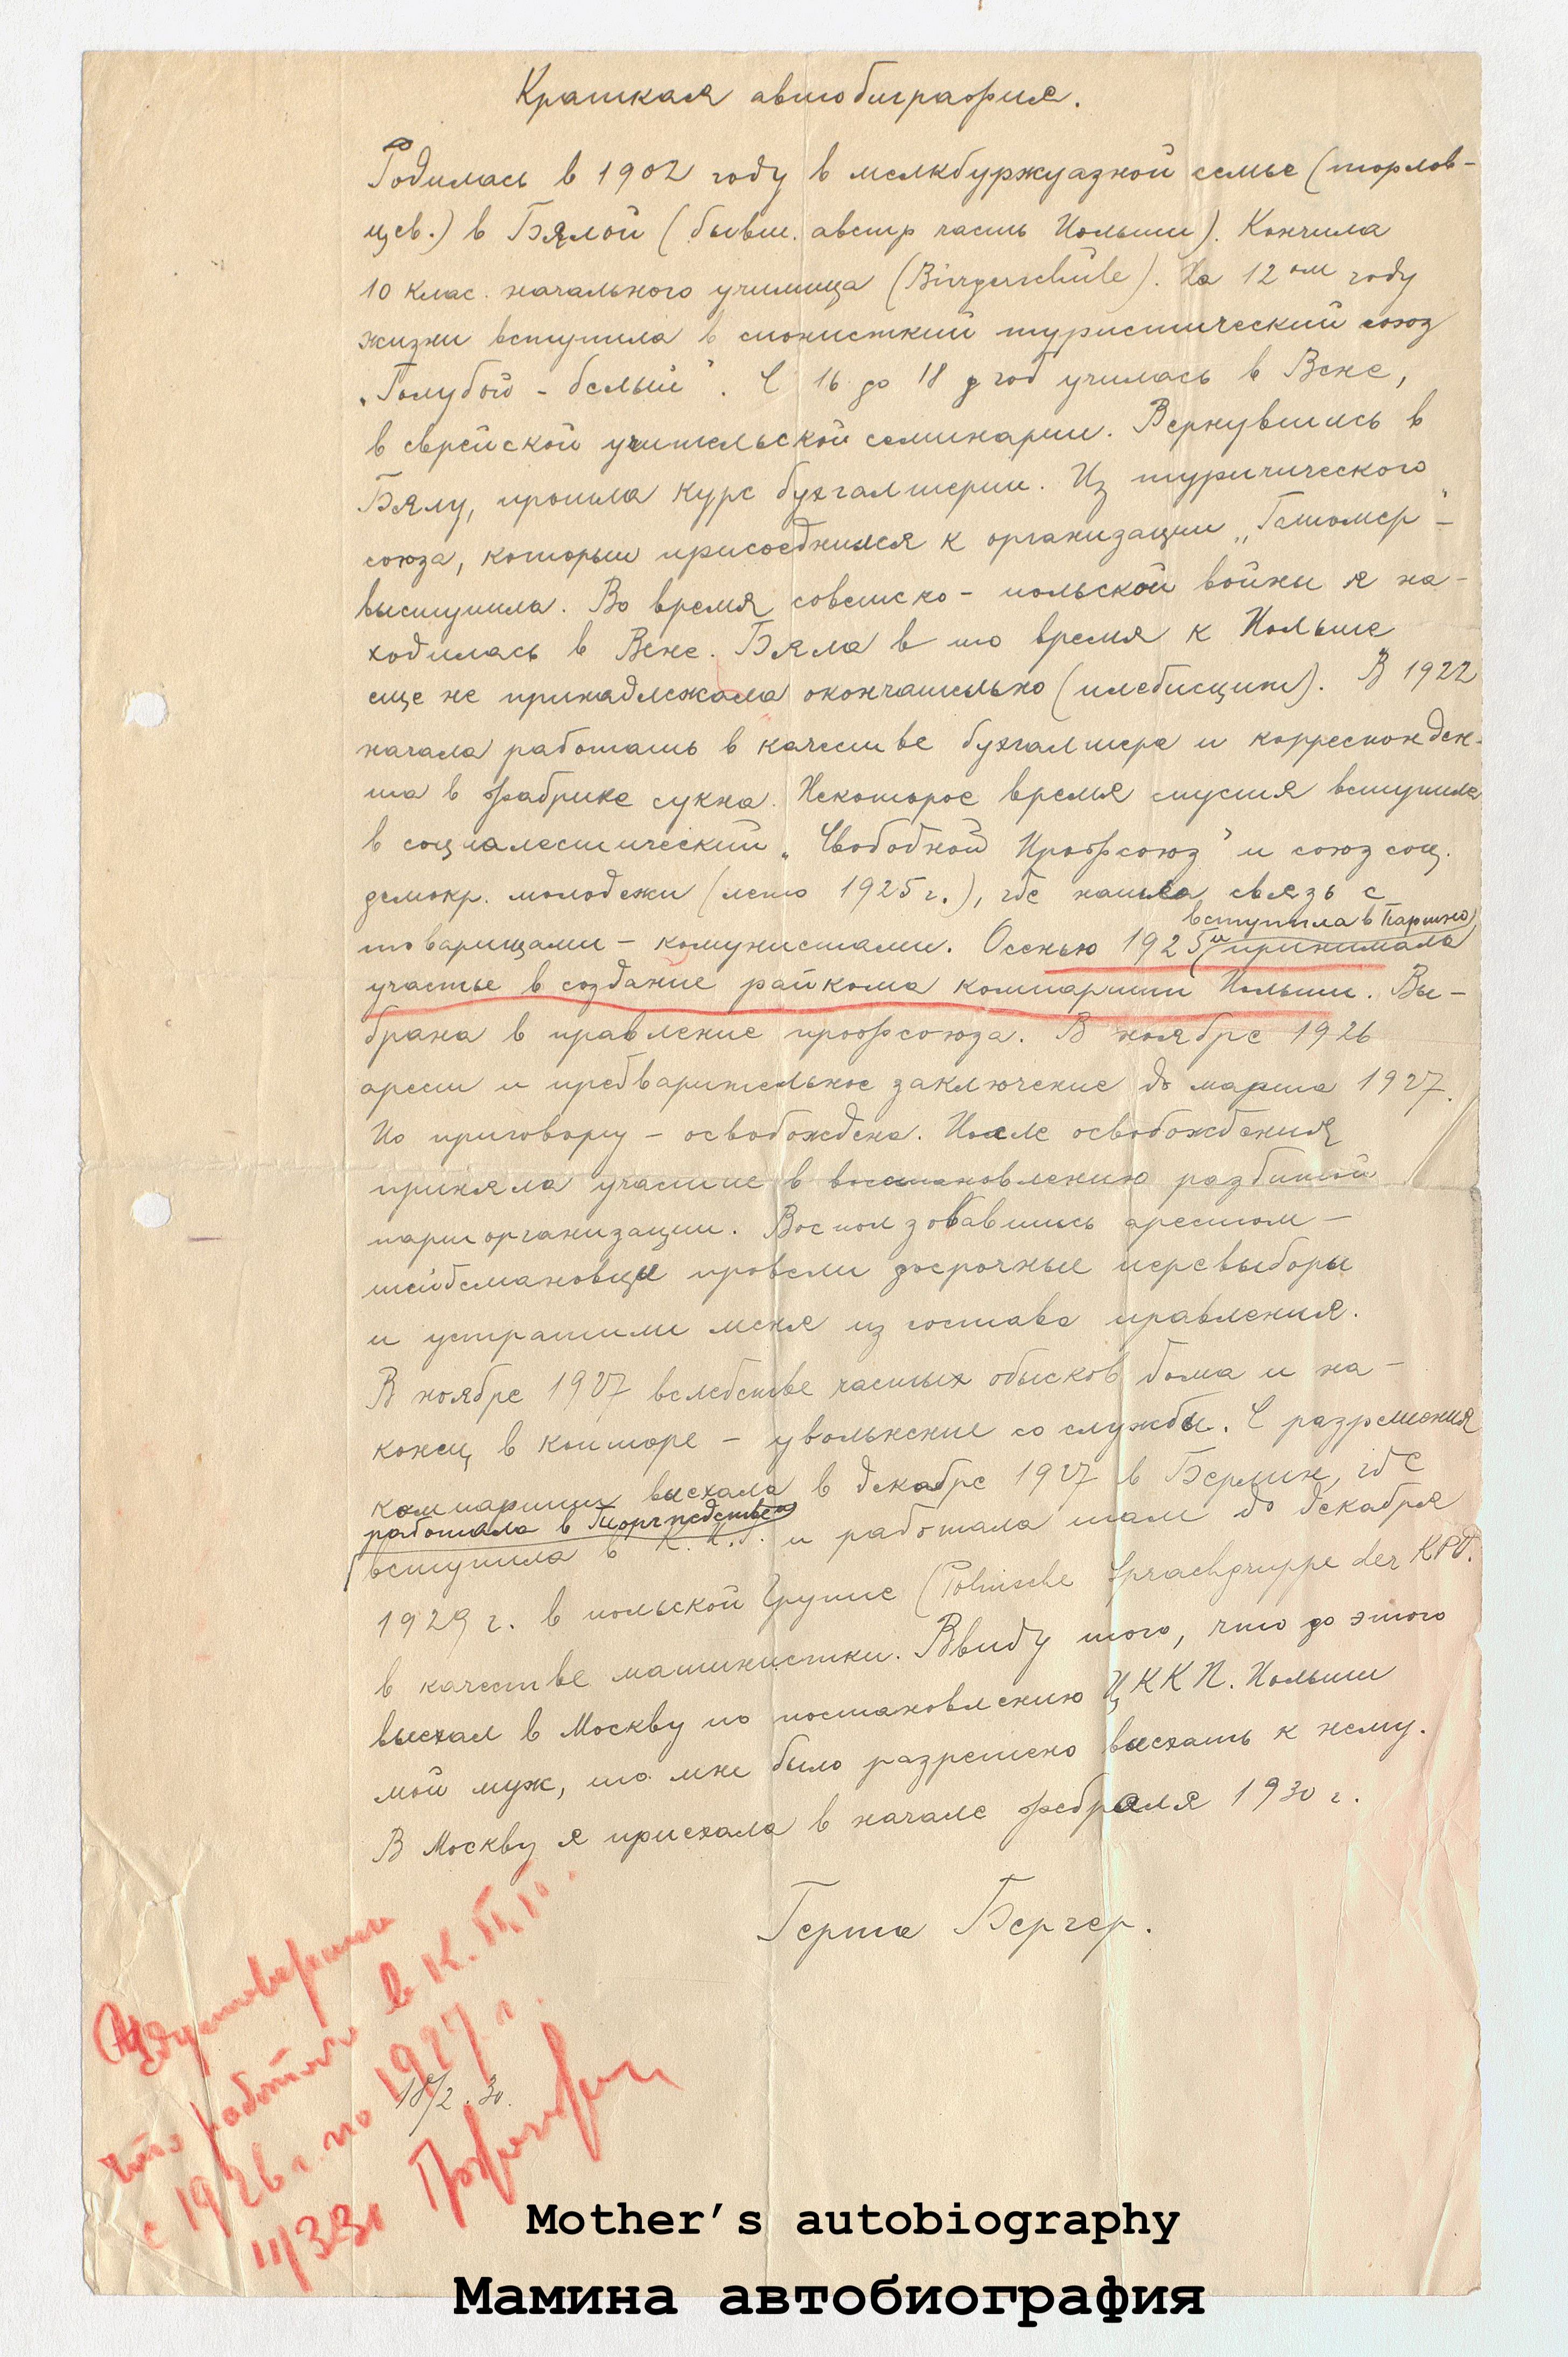 Краткая автобиография.
Родилась в 1902 году в мелкбуржуазной семье (торгов-
цев.) в Бялой (бывш. австр часть Польши). Кончила
10 клас. начального училища (Bürgerschule). На 12ом году
жизни вступила в сионисткий туристический союз
„Голубой - белый". С 16 до 18 год училась в Вене,
в еврейской учительской семинарии. Вернувшись в
Бялу, прошла курс бухгалтерии. Из туричического
союза, который присоеднился к организации „Гашомер" -
выступила. Во время советско - польской войны я на-
ходилась в Вене. Бяла в то время к Польше
еще не принадлежала окончательно (плебисцит). В 1922
начала работать в качестве бухгалтера и корреспонден-
та в фабрике сукна. Некоторое время спустя вступила
в социалестический „Свободной Профсоюз" и союз соц.
демокр. молодежи (лето 1925 г.), где нашла связь с
вступила в Партию
товарищами - комунистами. Осенью 1925 и принимала
участье в создание райкома компартии Польши. Вы-
брана в правление профсоюза. В ноябре 1926
арест и предварительное заключение до марта 1927.
По приговору - освобождена. После освобождения
приняла участие в восстановлению разбитой
парторганизации. Воспользовавшись арестом -
шейдемановцы провели досрочные перевыборы
и устратили меня из состава правления.
В ноябре 1927 вследстве частых обысков дома и на-
конец в конторе - увольнение со службы. С разрешения
компартии выехала в декабре 1927 в Берлин, где
работала в Торгпредстве
вступила в К.П.Г. и работала там до декабря
1929 г. в польской Групие (Polnische Sprachgruppe der KPD.
в качестве машинистки. Ввиду того, что до этого
выехал в Москву по постановлению ЦККП. Польши
мой муж, то мне было разрешено выехать к нему.
В Москву я приехала в начале февраля 1930 г.
Герта Бергер.
Удустоверяю
что работала в К.П.П.
с 1926 г. по 1927 г.
18/2.30.
Mother's autobiography
Мамина автобиография